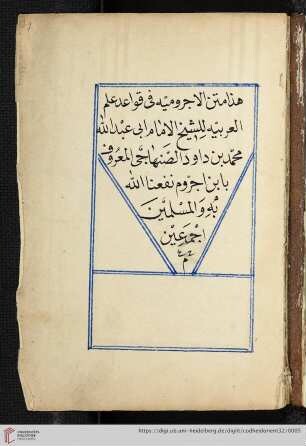 هذا متن الاجروميه فى قواعد علم
العربيه للشيخ الامام ابى عبد الله
محمد بن داود الصنهاجى المعروف
بابن اجروم نفعنا الله
به والمسلمين
اجمعين
م
UNIVERSITÄTS-
BIBLIOTHEK
HEIDELBERG
https://digi.ub.uni-heidelberg.de/diglit/codheidorient32/0005